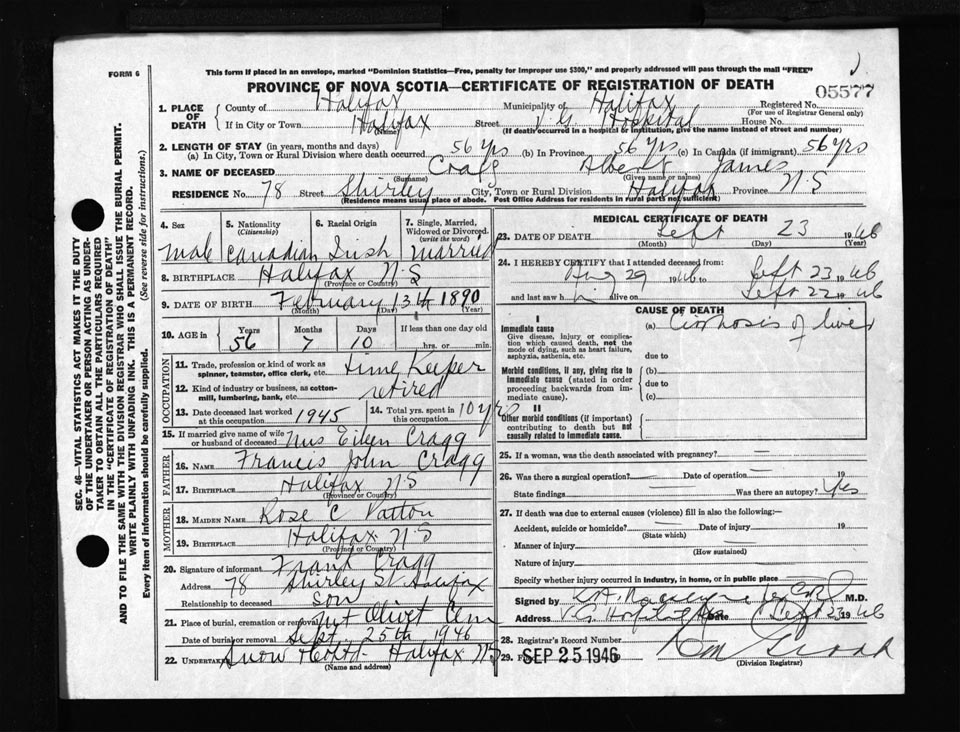 FORM 6
This form if placed in an envelope, marked "Dominion Statistics—Free, penalty for improper use $300," and properly addressed will pass through the mail "FREE"
PROVINCE OF NOVA SCOTIA—CERTIFICATE OF REGISTRATION OF DEATH
05577
1. PLACE OF DEATH
County of Halifax Municipality of Halifax Registered No.
(For use of Registrar General only)
If in City or Town Halifax Street V G Hospital House No.
(Name) (If death occurred in a hospital or institution, give the name instead of street and number)
2. LENGTH OF STAY (in years, months and days)
(a) In City, Town or Rural Division where death occurred 56 yrs (b) In Province 56 yrs (c) In Canada (if immigrant) 56 yrs
3. NAME OF DECEASED Cragg Albert James
(Surname) (Given name or names)
RESIDENCE No. 78 Street Shirley City, Town or Rural Division Halifax Province N.S
(Residence means usual place of abode. Post Office Address for residents in rural parts not sufficient)
4. Sex 5. Nationality (Citizenship) 6. Racial Origin 7. Single, Married, Widowed or Divorced (write the word)
Male Canadian Irish Married
8. BIRTHPLACE Halifax N.S
(Province or Country)
9. DATE OF BIRTH February 13th 1890
(Month) (Day) (Year)
10. AGE in Years Months Days If less than one day old
56 7 10 hrs. or min.
OCCUPATION
11. Trade, profession or kind of work as spinner, teamster, office clerk, etc. time Keeper
12. Kind of industry or business, as cotton-mill, lumbering, bank, etc. retired
13. Date deceased last worked at this occupation 1945 14. Total yrs. spent in this occupation 10 yrs
15. If married give name of wife or husband of deceased Mrs Eileen Cragg
FATHER
16. NAME Francis John Cragg
17. BIRTHPLACE Halifax N.S
(Province or Country)
MOTHER
18. MAIDEN NAME Rose C Patton
19. BIRTHPLACE Halifax N.S
(Province or Country)
20. Signature of informant Frank Cragg
Address 78 Shirley St Halifax
Relationship to deceased son
21. Place of burial, cremation or removal Mt Olivet Cem
Date of burial or removal Sept. 25th 1946
22. Undertaker Snow Halifax N.S
(Name and address)
MEDICAL CERTIFICATE OF DEATH
23. DATE OF DEATH Sept 23 1946
(Month) (Day) (Year)
24. I HEREBY CERTIFY that I attended deceased from:
Aug 29 1946 to Sept 23 1946
and last saw him alive on Sept 22 1946
CAUSE OF DEATH
I
Immediate cause (a) Cirrhosis of liver
Give disease, injury or complication which caused death, not the mode of dying, such as heart failure, asphyxia, asthenia, etc. due to
Morbid conditions, if any, giving rise to immediate cause (stated in order proceeding backwards from immediate cause). (b) due to (c)
II
Other morbid conditions (if important) contributing to death but not causally related to immediate cause.
25. If a woman, was the death associated with pregnancy? —
26. Was there a surgical operation? — Date of operation — 19
State findings Was there an autopsy? Yes
27. If death was due to external causes (violence) fill in also the following:—
Accident, suicide or homicide? — Date of injury 19
(State which)
Manner of injury
(How sustained)
Nature of injury
Specify whether injury occurred in industry, in home, or in public place
Signed by M.D.
Address V.G. Hospital Date Sept 23 1946
28. Registrar's Record Number
29. SEP 25 1946
(Division Registrar)
SEC. 46—VITAL STATISTICS ACT MAKES IT THE DUTY OF THE UNDERTAKER OR PERSON ACTING AS UNDERTAKER TO OBTAIN ALL THE PARTICULARS REQUIRED IN THE "CERTIFICATE OF REGISTRATION OF DEATH" AND TO FILE THE SAME WITH THE DIVISION REGISTRAR WHO SHALL ISSUE THE BURIAL PERMIT.
WRITE PLAINLY WITH UNFADING INK. THIS IS A PERMANENT RECORD.
Every item of information should be carefully supplied. (See reverse side for instructions.)